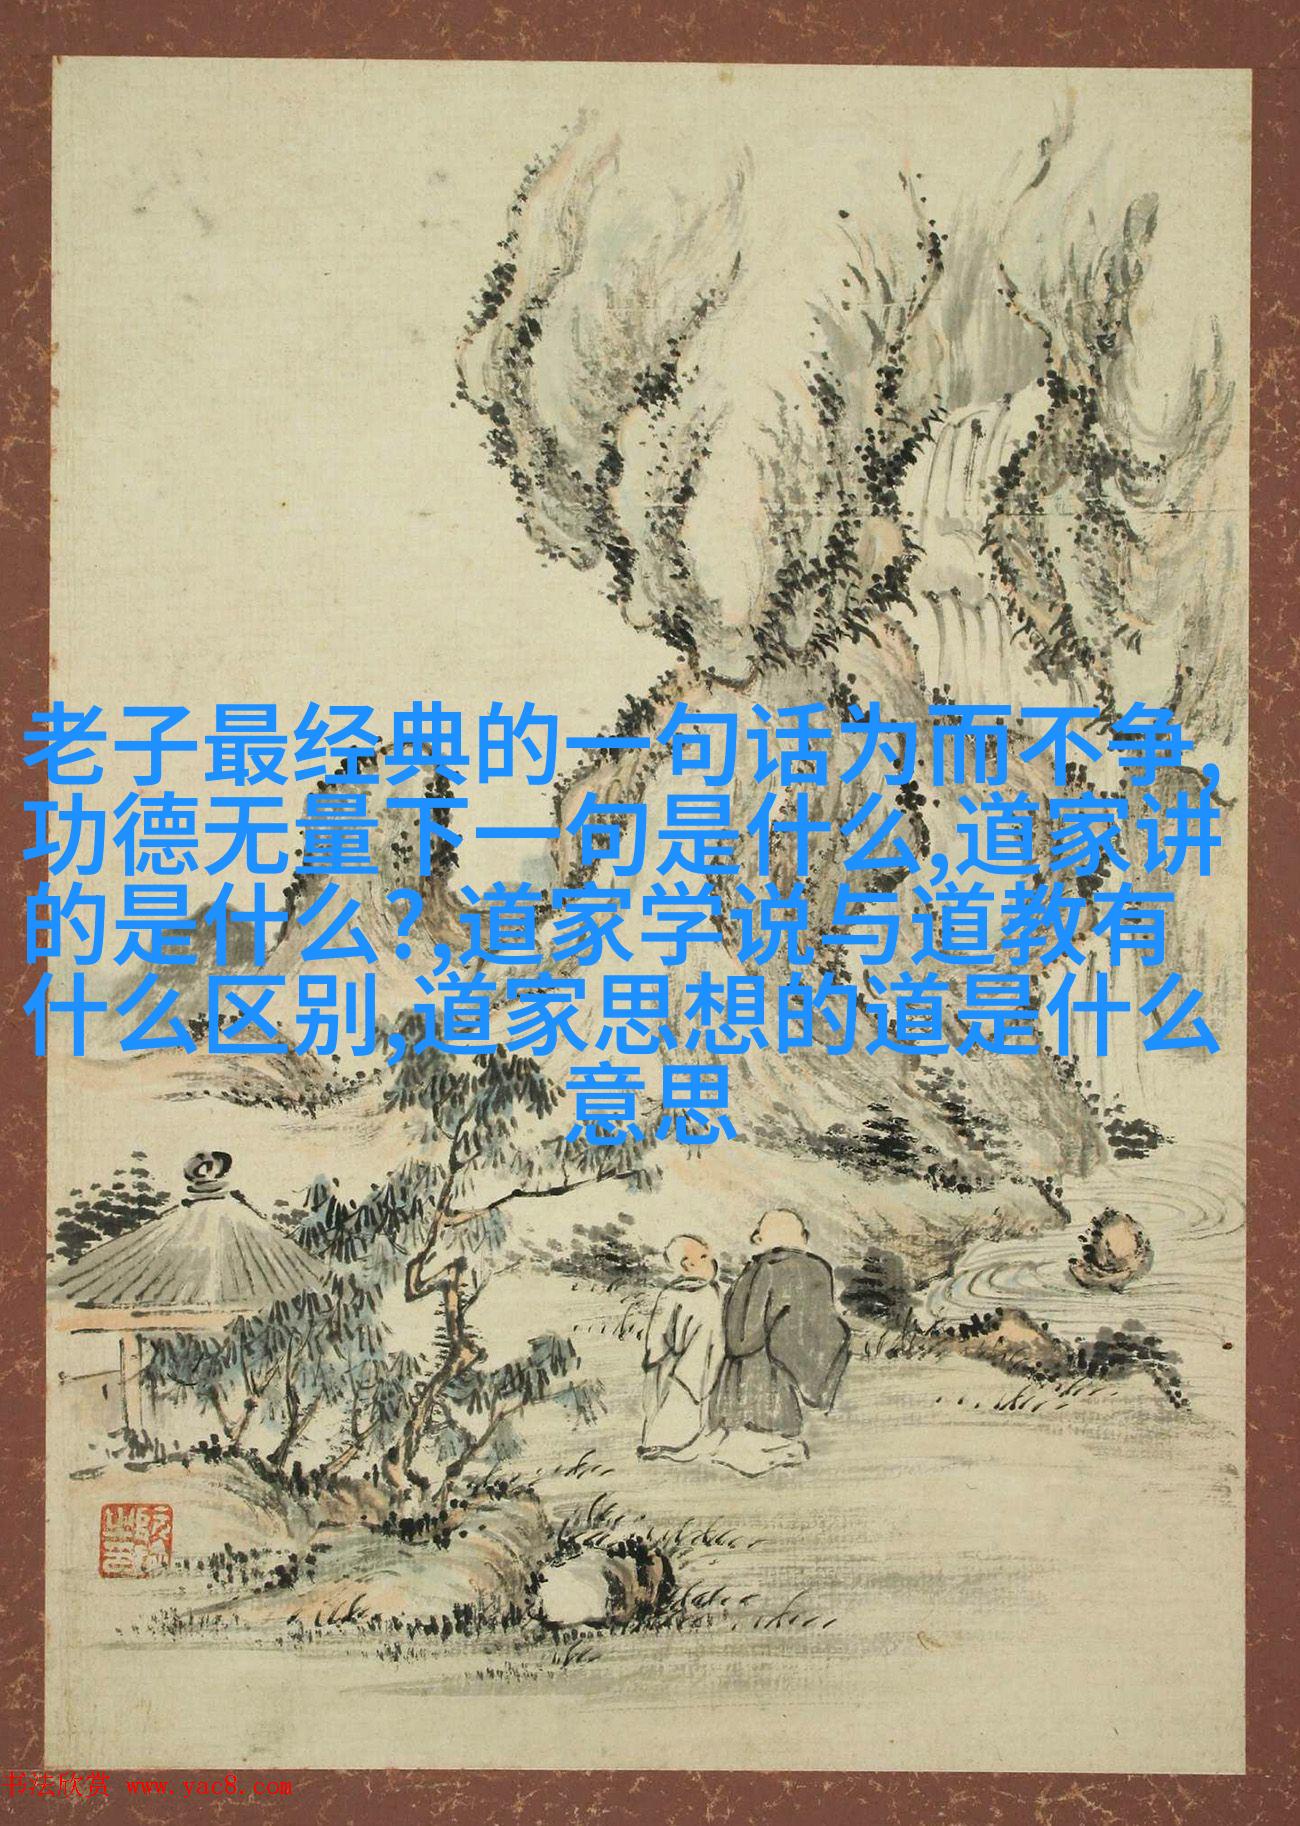 老子最经典的一句话为而不争,
功德无量下一句是什么,道家讲
的是什么?,道家学说与道教有
什么区别,道家思想的道是什么
意思
书法欣赏 www.yac8.com